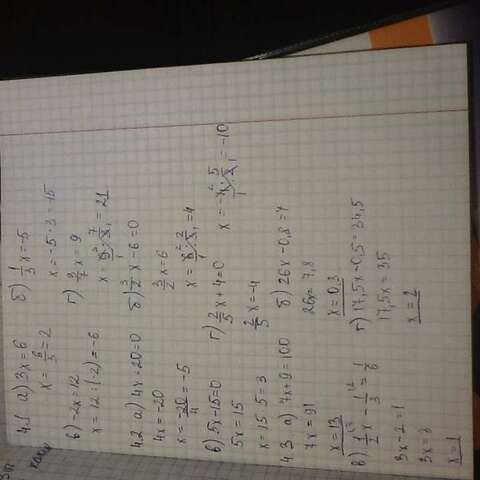 4.1 а) 3x = 6
x = 6/3 = 2
б) 1/3 x = -5
x = -5 · 3 = -15
в) -2x = 12
x = 12 : (-2) = -6
г) 3/7 x = 9
x = 9/1 · 7/3 = 21
4.2 а) 4x + 20 = 0
4x = -20
x = -20/4 = -5
б) 3/2 x - 6 = 0
3/2 x = 6
x = 6/1 · 2/3 = 4
в) 5x - 15 = 0
5x = 15
x = 15 : 5 = 3
г) 2/5 x + 4 = 0
2/5 x = -4
x = -4/1 · 5/2 = -10
4.3 а) 7x + 9 = 100
7x = 91
x = 13
б) 26x - 0,8 = 7
26x = 7,8
x = 0,3
в) 1/2 x - 1/3 = 1/6
3x - 2 = 1
3x = 3
x = 1
г) 17,5x - 0,5 = 34,5
17,5x = 35
x = 2